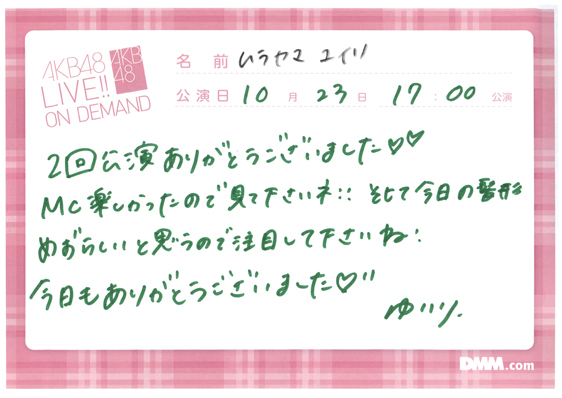 AKB48
LIVE!!
ON DEMAND
AKB
48
名前 ムラヤマ ユイリ
公演日 10月23日 17:00公演
2回公演ありがとうございました♡♡
MC楽しかったので見て下さいネ!! そして今日の髪形
めずらしいと思うので注目して下さいね!
今日もありがとうございました♡"
ゆいり.
DMM.com